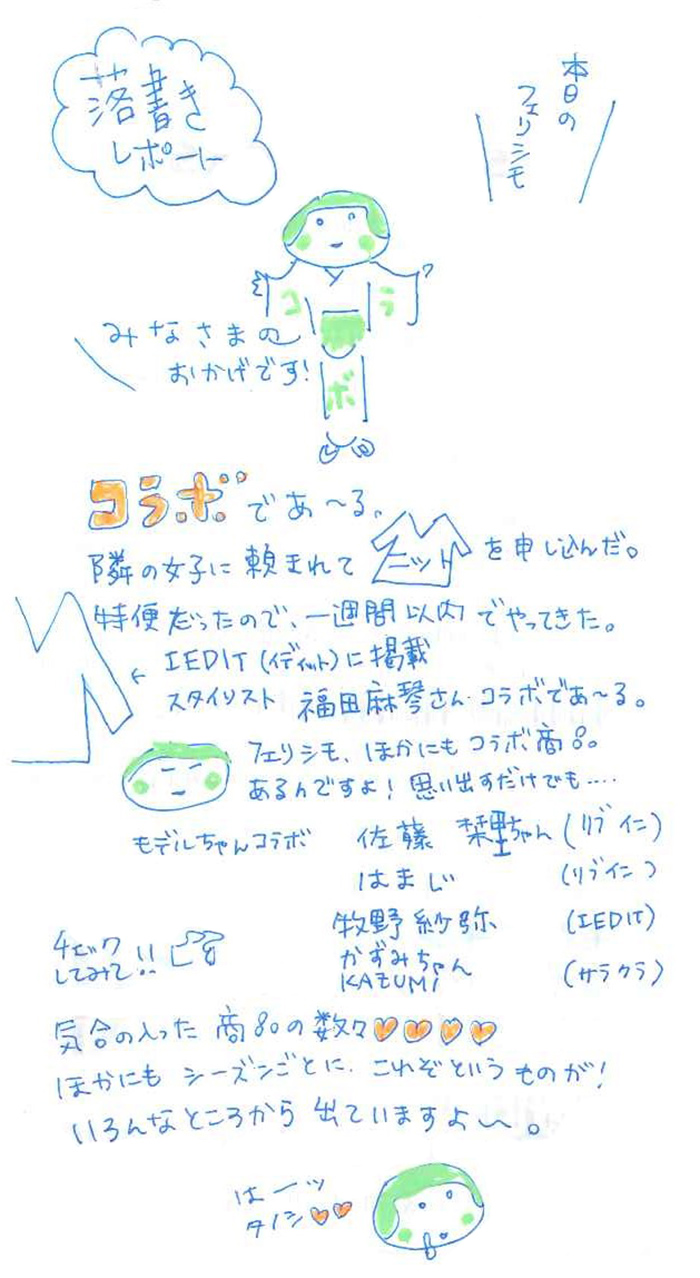 落書き
レポート
本日の
フェリシモ
コ ラ
ボ
みなさまの
おかげです!
コラボであ〜る。
隣の女子に頼まれてニットを申し込んだ。
特便だったので、一週間以内でやってきた。
← IEDIT(イディット)に掲載
スタイリスト 福田麻琴さん コラボであ〜る。
フェリシモ、ほかにもコラボ商品。
あるんですよ! 思い出すだけでも‥‥
モデルちゃんコラボ
佐藤 栞里ちゃん(リブイン)
はまじ (リブイン)
牧野紗弥 (IEDIT)
かずみちゃん
KAZUMi (サラクラ)
チェック
してみて!!
気合の入った 商品の数々♡♡♡♡
ほかにも シーズンごとに、これぞというものが!
いろんなところから 出ていますよ〜。
はーッ
タノシ♡♡